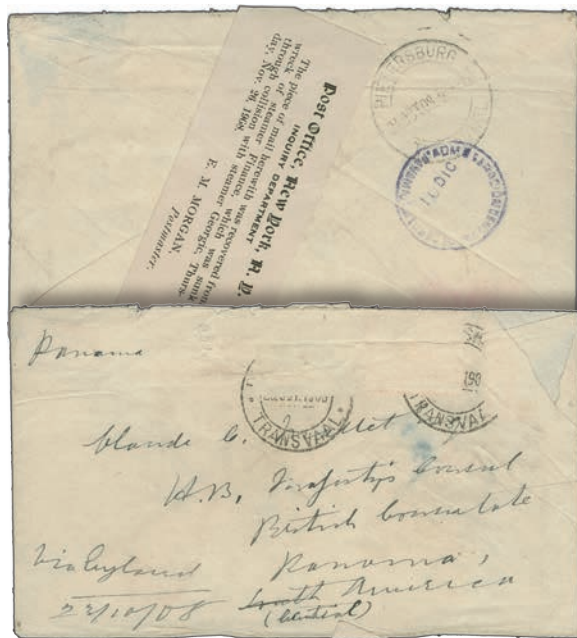 Post Office, New York, N. Y.
INQUIRY DEPARTMENT
The piece of mail herewith was recovered from
wreck of steamer Finance, which was sunk
through collision with steamer Georgic, Thurs-
day, Nov. 26, 1908.
E. M. MORGAN,
Postmaster.
PIETERSBURG
10 DIC
Panama
TRANSVAAL
190
TRANSVAAL
Claude C.
H.B. Majesty's Consul
British Consulate
Panama,
South America
(Central)
Via England
22/10/08